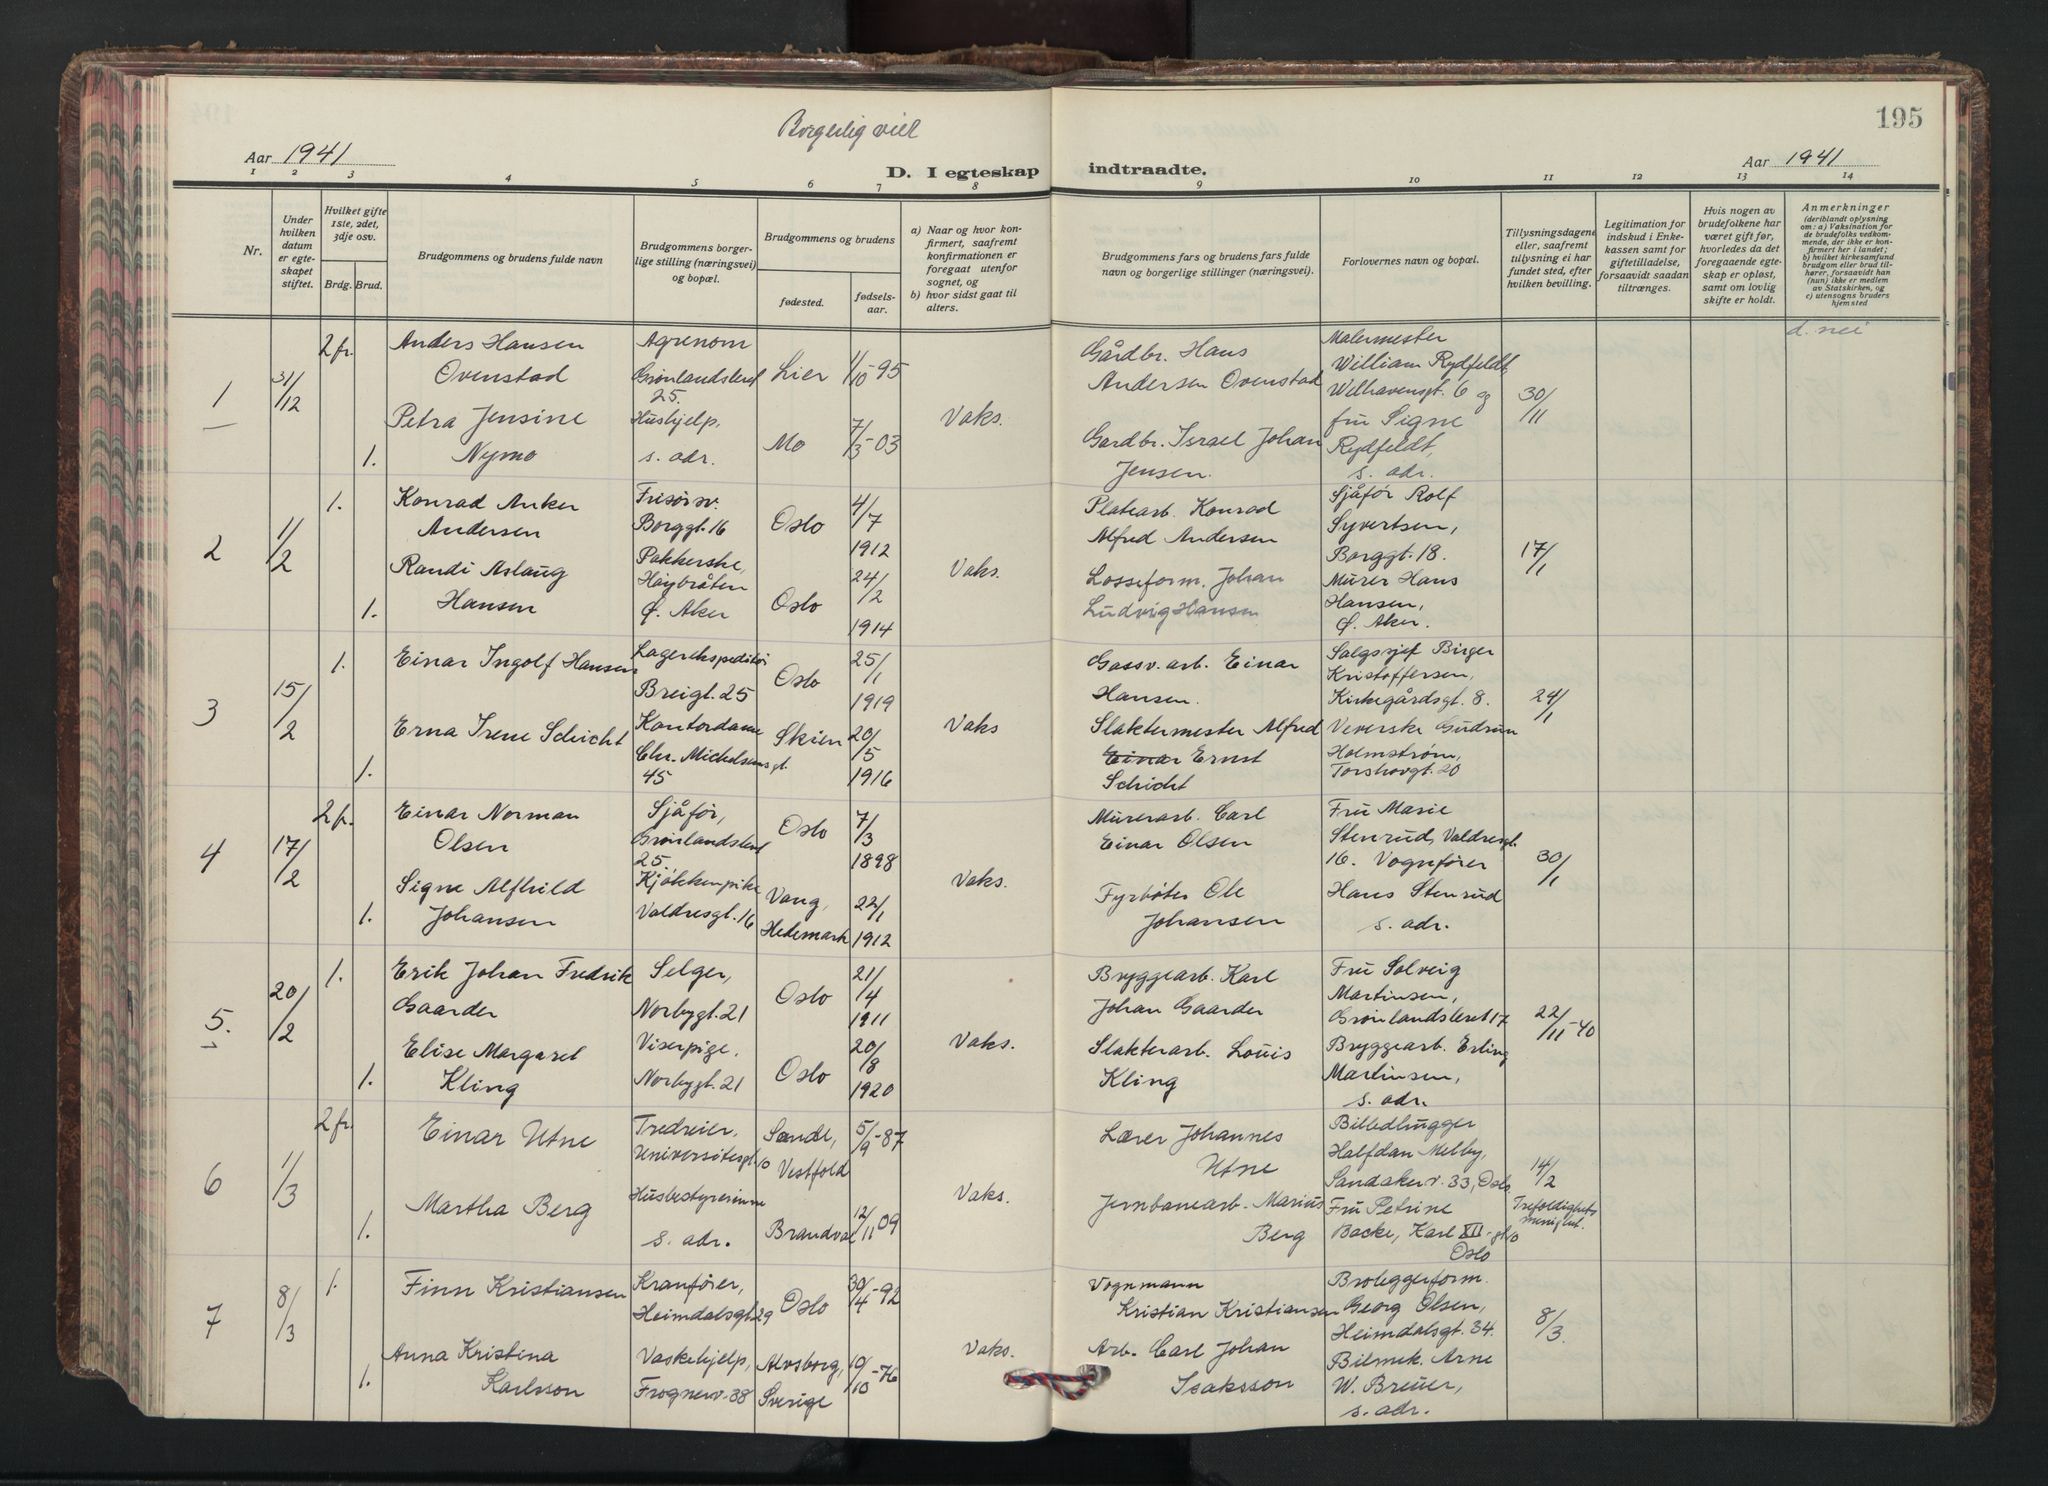 195
Borgerlig viet
Aar 1941
D. I egteskap
indtraadte.
Aar 1941
1 2 3 4 5 6 7 8 9 10 11 12 13 14
Nr.
Under hvilken datum er egteskapet stiftet.
Hvilket gifte 1ste, 2det, 3dje osv.
Brdg. Brud.
Brudgommens og brudens fulde navn
Brudgommens borgerlige stilling (næringsvei) og bopæl.
Brudgommens og brudens
fødested.
fødselsaar.
a) Naar og hvor konfirmert, saafremt konfirmationen er foregaat utenfor sognet, og
b) hvor sidst gaat til alters.
Brudgommens fars og brudens fars fulde navn og borgerlige stillinger (næringsvei).
Forlovernes navn og bopæl.
Tillysningsdagene eller, saafremt tillysning ei har fundet sted, efter hvilken bevilling.
Legitimation for indskud i Enkekassen samt for giftetilladelse, forsaavidt saadan tiltrænges.
Hvis nogen av brudefolkene har været gift før, hvorledes da det foregaaende egteskap er opløst, samt om lovlig skifte er holdt.
Anmerkninger
(deriblandt oplysning om: a) Vaksination for de brudefolks vedkommende, der ikke er konfirmert her i landet; b) hvilket kirkesamfund brudgom eller brud tilhører, forsaavidt han (hun) ikke er medlem av Statskirken, og c) utensogns bruders hjemsted
1
31/12
2 fr.
Anders Hansen
Ovenstad
Agronom
Grønlandsleret
25.
Lier
1/10-95
Gårdbr. Hans
Andersen Ovenstad
Malermester
William Rydfeldt,
Welhavensgt. 6 og
fru Signe
Rydfeldt,
s. adr.
30/11
d. nei
1.
Petra Jensine
Nymo
Hushjelp,
s. adr.
Mo
7/3-03
Vaks.
Gardbr. Israel Johan
Jensen.
2
1/2
1.
Konrad Anker
Andersen
Frisørsv.
Borggt. 16
Oslo
4/7
1912
Platearb. Konrad
Alfred Andersen
Sjåfør Rolf
Syvertsen,
Borggt. 18.
Murer Hans
Hansen,
Ø. Aker.
17/1
1.
Randi Aslaug
Hansen
Pakkerske,
Høybråten
Ø. Aker
Oslo
24/2
1914
Vaks.
Losseform. Johan
Ludvig Hansen
3
15/2
1.
Einar Ingolf Hansen
Lagerekspeditør
Breigt. 25
Oslo
25/1
1919
Gassv. arb. Einar
Hansen.
Salgssjef Birger
Kristoffersen,
Kirkegårdsgt. 8.
Veverske Gudrun
Holmstrøm,
Torshovgt. 20
24/1
1.
Erna Irene Schicht
Kontordame
Chr. Michelsensgt.
45
Skien
20/5
1916
Vaks
Slaktermester Alfred
Einar Ernst
Schicht
4
17/2
2 fr.
Einar Norman
Olsen
Sjåfør,
Grønlandsleret
25.
Oslo
7/3
1898
Murerarb. Carl
Einar Olsen
Fru Marie
Stenrud, Valdresgt.
16. Vognfører
Hans Stenrud
s. adr.
30/1
1.
Signe Alfhild
Johansen
Kjøkkenpike
Valdresgt. 16
Vang,
Hedemark
22/1
1912
Vaks.
Fyrbøter Ole
Johansen
5.
20/2
1.
Erik Johan Fredrik
Gaarder
Selger,
Norbygt. 21
Oslo
21/4
1911
Bryggearb. Karl
Johan Gaarder
Fru Solveig
Martinsen,
Grønlandsleret 17
Bryggearb. Erling
Martinsen,
s. adr.
22/11-40
1.
Elise Margaret
Kling
Viserpige,
Norbygt. 21
Oslo
20/8
1920
Vaks.
Slakterarb. Louis
Kling
6
1/3
2 fr.
Einar Utne
Tredreier,
Universitetsgt. 10
Sande,
Vestfold
5/9-87
Lærer Johannes
Utne
Billedhugger
Halfdan Melby,
Sandakerv. 33, Oslo
Fru Petrine
Backe, Karl XII-gt. 10
Oslo
14/2
Trefoldighets
menighet.
1.
Martha Berg
Husbestyrerinne
s. adr.
Brandval
12/11 09
Vaks.
Jernbanearb. Marius
Berg
7
8/3
1.
Finn Kristiansen
Kranfører,
Heimdalsgt. 29
Oslo
30/4-92
Vognmann
Kristian Kristiansen
Broleggerform.
Georg Olsen,
Heimdalsgt. 34.
Bilmek. Arne
W. Breuer,
s. adr.
8/3.
1.
Anna Kristina
Karlsson
Vaskehjelp,
Frognerv. 38
Alvsborg,
Sverige
10/10-76
Vaks.
Arb. Carl Johan
Isaksson